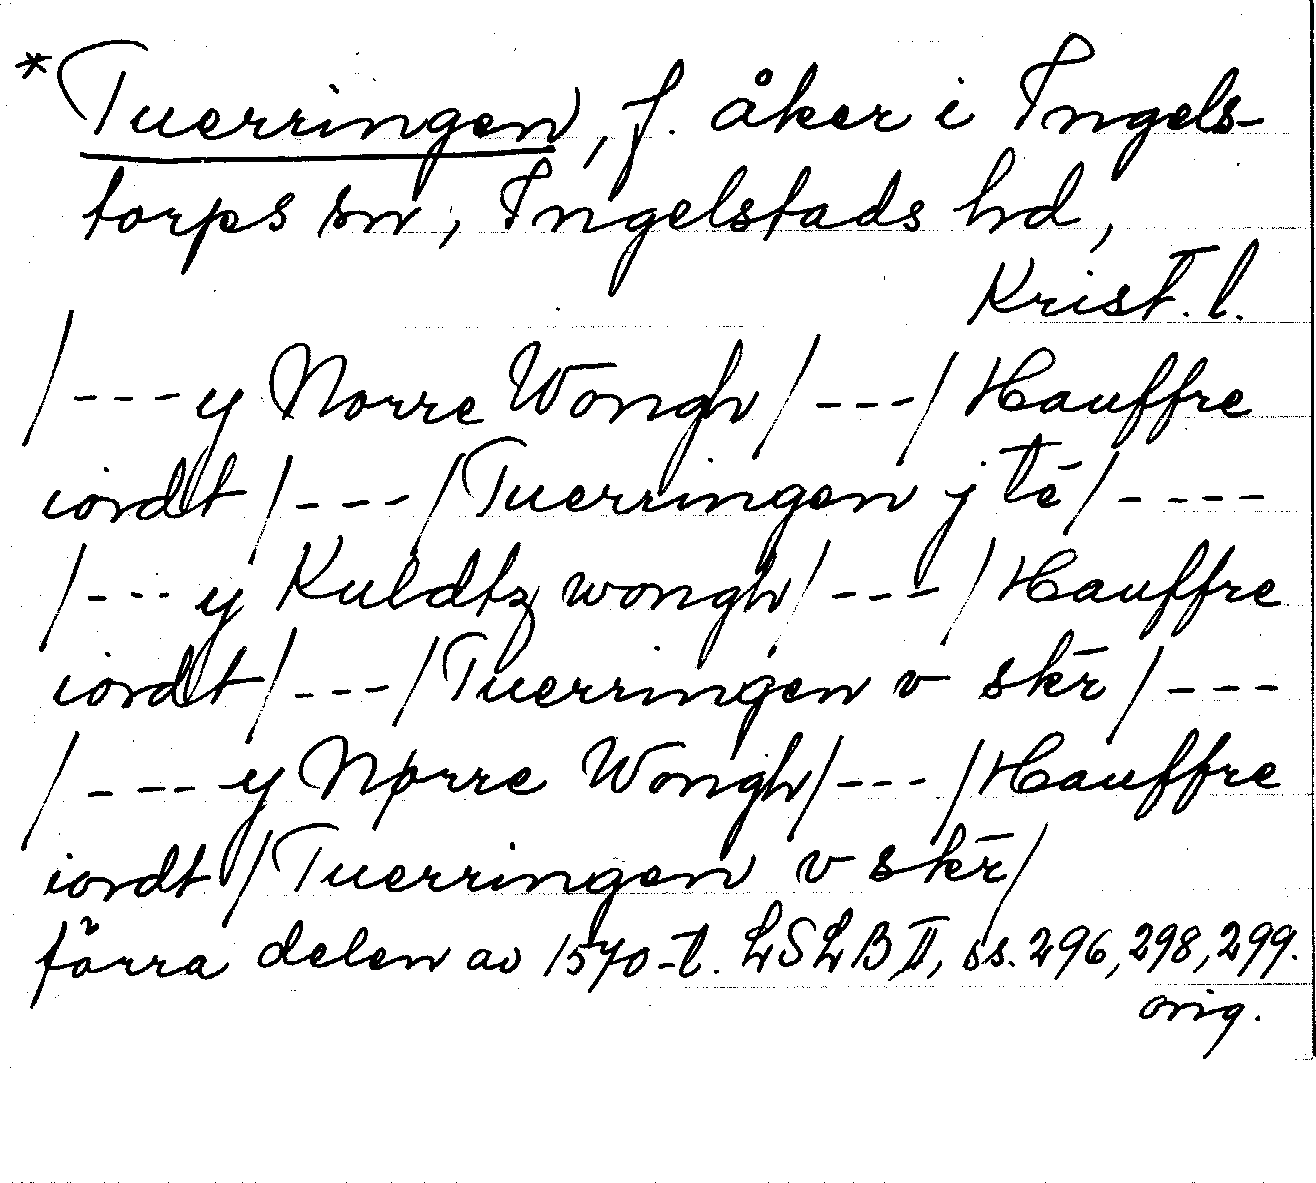 *Tuerringen, f. åker i Ingels-
torps sn, Ingelstads hd,
Krist. l.
/---y Norre Wongh/---/Hauffre
iordt/---/Tuerringen j tē/----
/---y Kuldtz wongh/---/Hauffre
iordt/---/Tuerringen v skr̄/---
/----y Nørre Wongh/---/Hauffre
iordt/Tuerringen v skr̄/
förra delen av 1570-t. LSLB II, ss. 296, 298, 299.
orig.